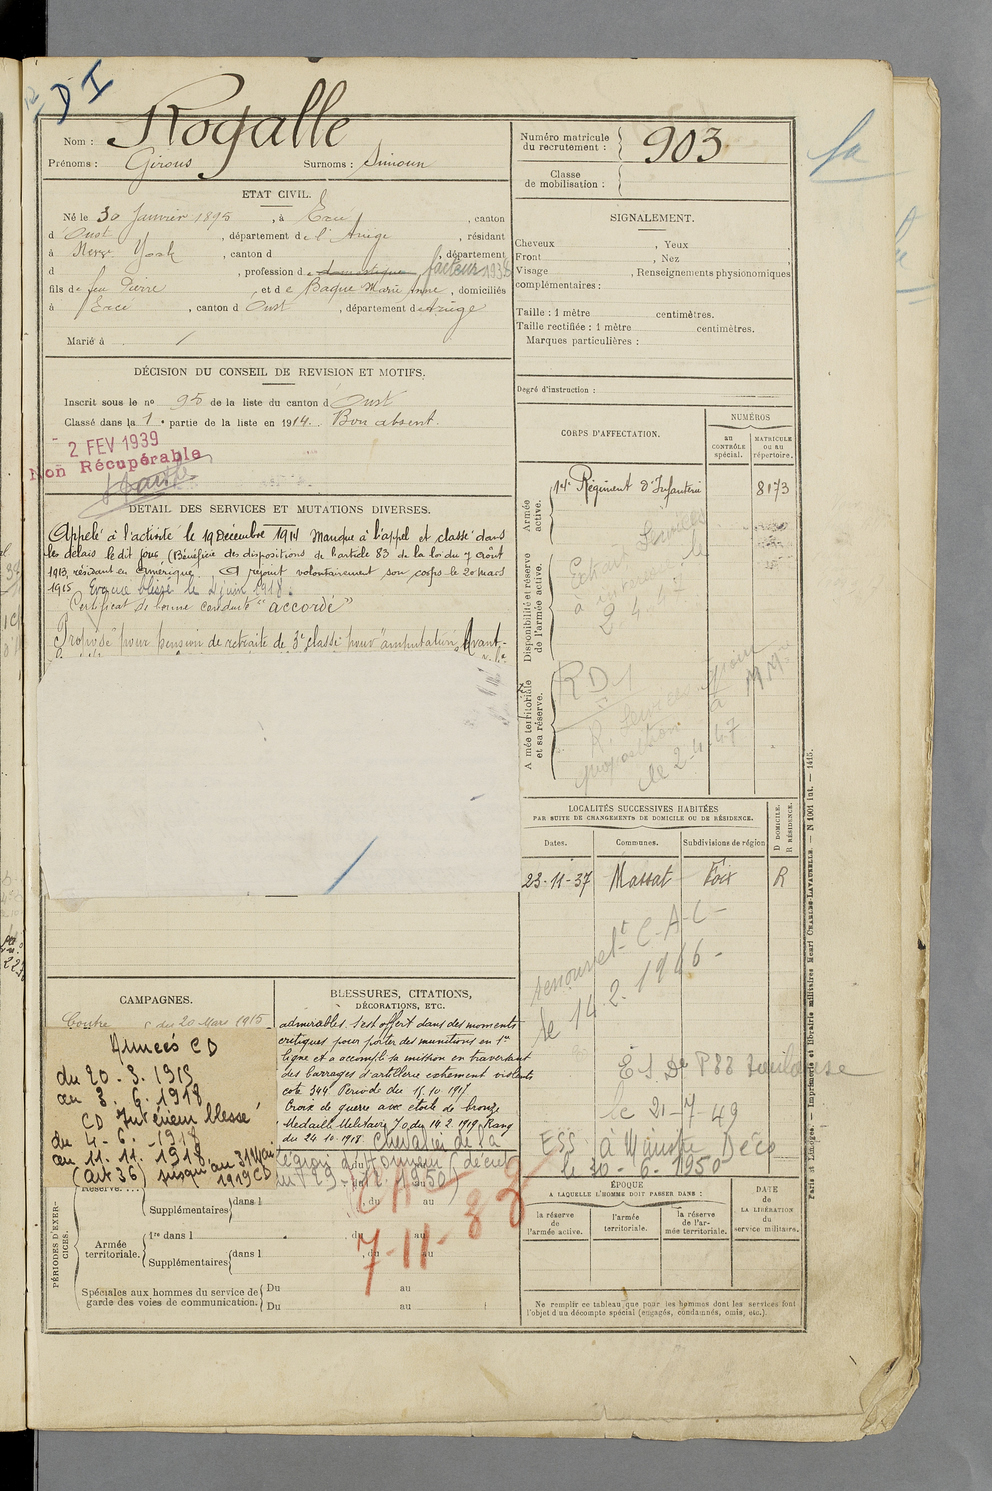 D I
Nom : Rogalle
Prénoms : Girons Surnoms : Simoun
ETAT CIVIL.
Né le 30 Janvier 1895, à Ercé, canton
d'Oust, département de l'Ariège, résidant
à New York, canton d , département
d , profession de domestique, facteur 1938
fils de feu Pierre et de Baque Marie Anne, domiciliés
à Ercé, canton d'Oust, département d'Ariège
Marié à
DÉCISION DU CONSEIL DE REVISION ET MOTIFS.
Inscrit sous le no 95 de la liste du canton d'Oust
Classé dans la 1e partie de la liste en 1914. Bon absent.
2 FEV 1939
Non Récupérable
DÉTAIL DES SERVICES ET MUTATIONS DIVERSES.
Appelé à l'activité le 19 Décembre 1914 Manque à l'appel et classé dans
les délais le dit jour (Bénéficie des dispositions de l'article 83 de la loi du 7 août
1913, résidant en Amérique. A rejoint volontairement son corps le 20 mars
1915 Evacué blessé le 4 juin 1918.
Certificat de bonne conduite "accordé"
Proposé pour pension de retraite de 3e classe pour "amputation Avant-
CAMPAGNES.
Contre du 20 Mars 1915
Armées CD
du 20-3.1915
au 3.6.1918
CD Intérieur blessé
du 4-6-1918
au 11.11.1918
(Art 36) jusqu'au 31 Mai
1919 CD
BLESSURES, CITATIONS,
DÉCORATIONS, ETC.
admirables. s'est offert dans des moments
critiques pour porter des munitions en 1re
ligne et a accompli sa mission en traversant
des barrages d'artillerie extrêment violents
cote 344 Période du 15.10.1917
Croix de guerre avec étoile de bronze
Médaille Militaire J.O du 14.2.1919, Rang
du 24.10.1918. Chevalier de la
Légion d'Honneur (décret
du 29- 1950)
7-11-33
PÉRIODES D'EXERCICES.
Réserve
Supplémentaires dans l , du au
Armée territoriale. 1re dans l , du au
Supplémentaires dans l , du au
Spéciales aux hommes du service de garde des voies de communication. Du au
Du au
Numéro matricule du recrutement : 903
Classe de mobilisation :
SIGNALEMENT.
Cheveux , Yeux
Front , Nez
Visage , Renseignements physionomiques
complémentaires :
Taille : 1 mètre centimètres.
Taille rectifiée : 1 mètre centimètres.
Marques particulières :
Degré d'instruction :
CORPS D'AFFECTATION.
NUMÉROS
au CONTRÔLE spécial.
MATRICULE ou au répertoire.
Armée active.
14e Régiment d'Infanterie 8173
Disponibilité et réserve de l'armée active.
Extrait Services
à le
2.4.47
Armée territoriale et sa réserve.
RD 1
R. Services
proposition
le 2-4-47
LOCALITÉS SUCCESSIVES HABITÉES
PAR SUITE DE CHANGEMENTS DE DOMICILE OU DE RÉSIDENCE.
Dates. Communes. Subdivisions de région D DOMICILE. R RÉSIDENCE.
23-11-37 Massat Foix R
renouvelt C-A-C-
le 14.2.1946-
ES Dr P88 Toulouse
le 21-7-49
ESS à Ministre Déco
le 30-6-1950
ÉPOQUE
A LAQUELLE L'HOMME DOIT PASSER DANS :
la réserve de l'armée active.
l'armée territoriale.
la réserve de l'armée territoriale.
DATE de LA LIBÉRATION du service militaire.
Ne remplir ce tableau que pour les hommes dont les services font
l'objet d'un décompte spécial (engagés, condamnés, omis, etc.).
Paris et Limoges. — Imprimerie et librairie militaires Henri CHARLES-LAVAUZELLE. — N 1001 int. — 1415.